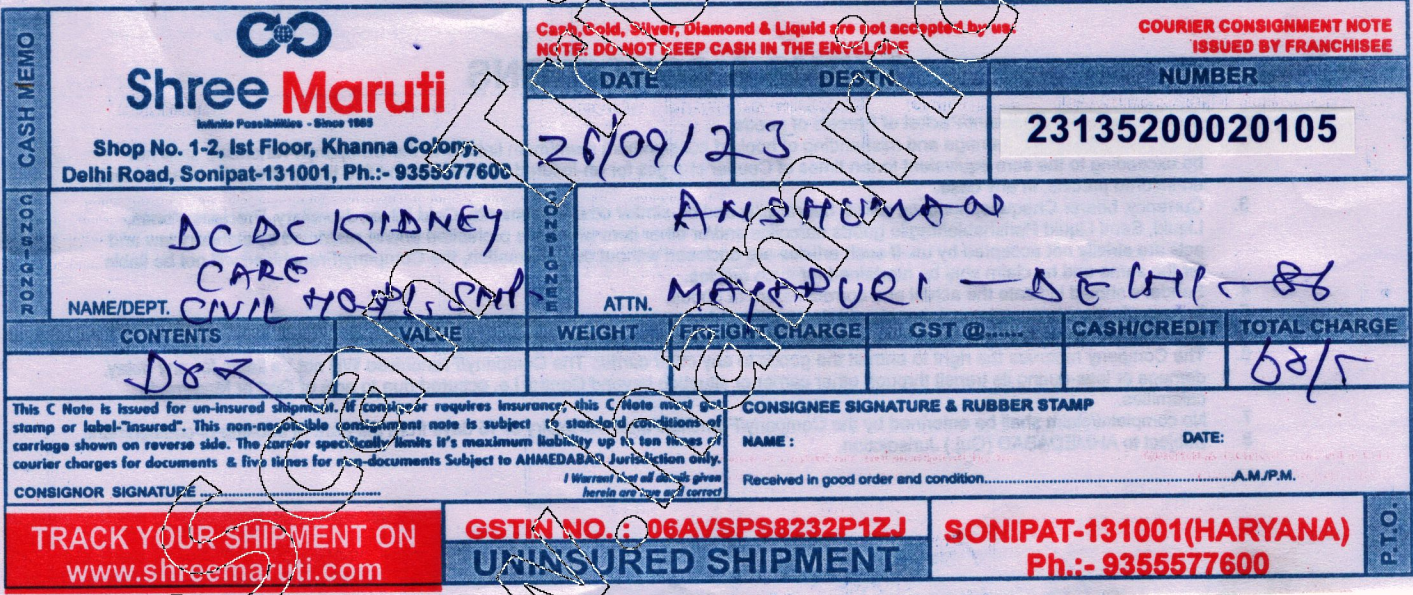 CASH MEMO
Shree Maruti
Infinite Possibilities - Since 1985
Shop No. 1-2, Ist Floor, Khanna Colony,
Delhi Road, Sonipat-131001, Ph.:- 9355577600
Cash, Gold, Silver, Diamond & Liquid are not accepted by us.
NOTE: DO NOT KEEP CASH IN THE ENVELOPE
COURIER CONSIGNMENT NOTE
ISSUED BY FRANCHISEE
DATE DESTN. NUMBER
26/09/23 23135200020105
CONSIGNOR
DCDC KIDNEY
CARE
NAME/DEPT. CIVIL HOSPI. SNP.
CONSIGNEE
ANSHUMAN
ATTN. MAYAPURI - DELHI - 86
CONTENTS VALUE WEIGHT FREIGHT CHARGE GST @...... CASH/CREDIT TOTAL CHARGE
This C Note is issued for un-insured shipment. If consignor requires insurance, this C Note must get
stamp or label-"insured". This non-negotible consignment note is subject to standard conditions of
carriage shown on reverse side. The carrier specifically limits it's maximum liability up to ten times of
courier charges for documents & five times for non-documents Subject to AHMEDABAD Jurisdiction only.
I Warrant that all details given
herein are true and correct
CONSIGNOR SIGNATURE
CONSIGNEE SIGNATURE & RUBBER STAMP
NAME : DATE:
Received in good order and condition A.M./P.M.
TRACK YOUR SHIPMENT ON
www.shreemaruti.com
GSTIN NO. : 06AVSPS8232P1ZJ
UNINSURED SHIPMENT
SONIPAT-131001(HARYANA)
Ph.:- 9355577600
P.T.O.